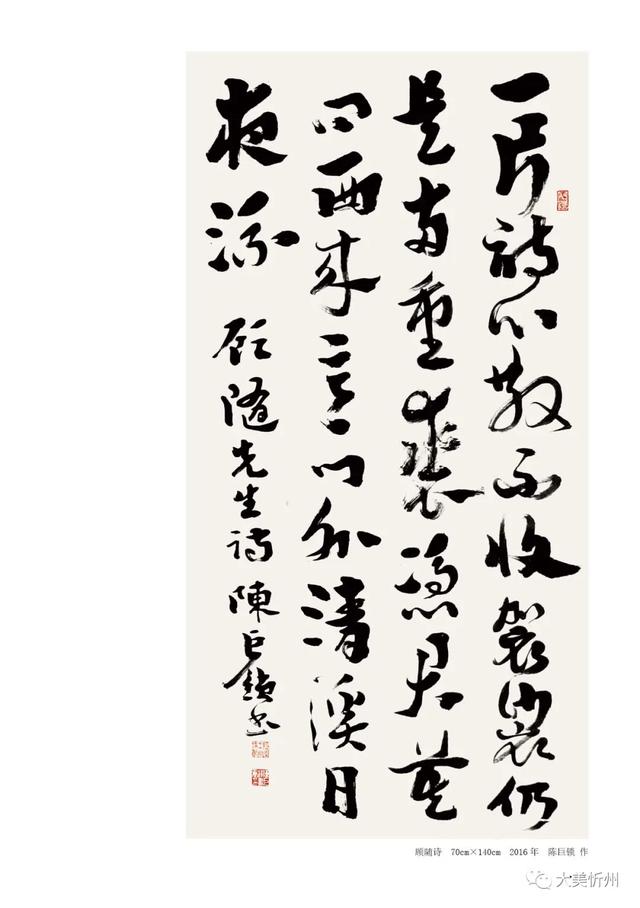 一片詩心散不收袈裟仍
是重裘憑君莫
問西來意門外清溪日
夜流
顾隨先生詩 陳巨鎖書
顾随诗 70cm×140cm 2016年 陈巨锁 作
大美忻州